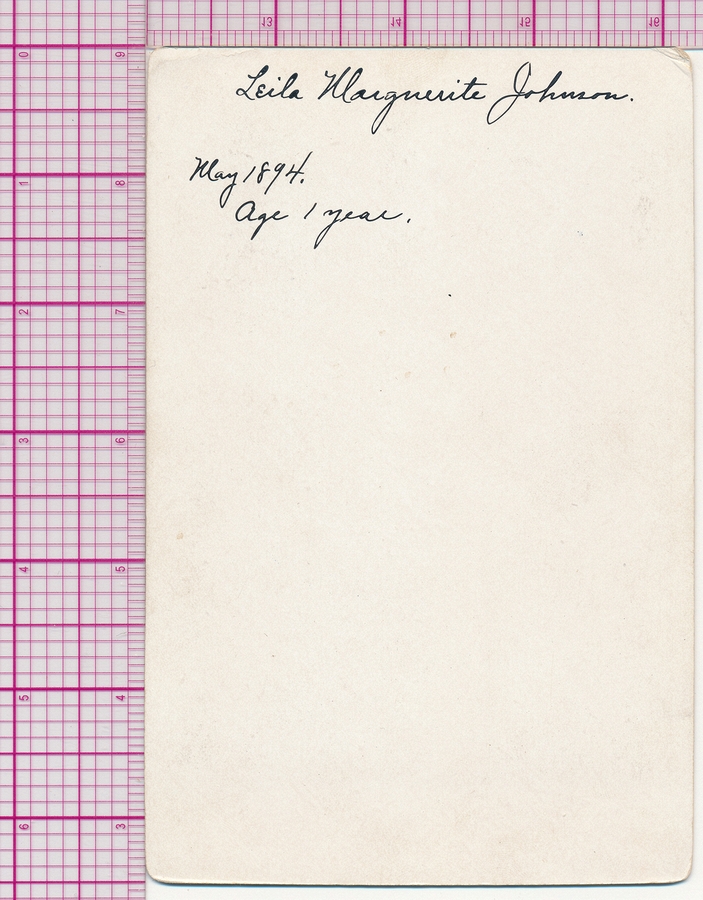 13 14 15 16
0 9
Leila Marguerite Johnson.
May 1894.
1 8
Age 1 year.
2 7
3 6
4 5
5 4
6 3